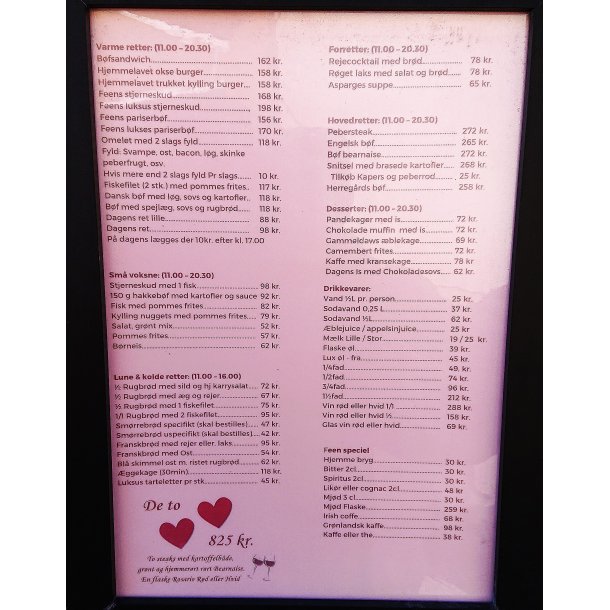 Varme retter: (11.00 - 20.30)
Bøfsandwich 162 kr.
Hjemmelavet okse burger 158 kr.
Hjemmelavet trukket kylling burger 158 kr.
Feens stjerneskud 168 kr.
Feens luksus stjerneskud 198 kr.
Feens pariserbøf 156 kr.
Feens lukses pariserbøf 170 kr.
Omelet med 2 slags fyld 118 kr.
Fyld: Svampe, ost, bacon, løg, skinke
peberfrugt, osv.
Hvis mere end 2 slags fyld Pr slags 10 kr.
Fiskefilet (2 stk.) med pommes frites 117 kr.
Dansk bøf med løg, sovs og kartofler 118 kr.
Bøf med spejlæg, sovs og rugbrød 118 kr.
Dagens ret lille 88 kr.
Dagens ret 98 kr.
På dagens lægges der 10kr. efter kl. 17.00
Små voksne: (11.00 - 20.30)
Stjerneskud med 1 fisk 98 kr.
150 g hakkebøf med kartofler og sauce 92 kr.
Fisk med pommes frites 82 kr.
Kylling nuggets med pommes frites 79 kr.
Salat, grønt mix 52 kr.
Pommes frites 57 kr.
Børneis 62 kr.
Lune & kolde retter: (11.00 - 16.00)
½ Rugbrød med sild og hj karrysalat 72 kr.
½ Rugbrød med æg og rejer 67 kr.
½ Rugbrød med 1 fiskefilet 75 kr.
1/1 Rugbrød med 2 fiskefilet 95 kr.
Smørrebrød specifikt (skal bestilles) 47 kr.
Smørrebrød uspecifikt (skal bestilles) 42 kr.
Franskbrød med rejer eller laks 95 kr.
Franskbrød med Ost 54 kr.
Blå skimmel ost m. ristet rugbrød 62 kr.
Æggekage (30min) 118 kr.
Luksus tarteletter pr stk 45 kr.
De to
825 kr.
To steaks med kartoffelbåde,
grønt og hjemmerørt rørt Bearnaise.
En flaske Rosario Rød eller Hvid
Forretter: (11.00 - 20.30)
Rejecocktail med brød 78 kr.
Røget laks med salat og brød 78 kr.
Asparges suppe 65 kr.
Hovedretter: (11.00 - 20.30)
Pebersteak 272 kr.
Engelsk bøf 265 kr.
Bøf bearnaise 272 kr.
Snitsel med brasede kartofler 268 kr.
Tilkøb Kapers og peberrod 25 kr.
Herregårds bøf 258 kr.
Desserter: (11.00 - 20.30)
Pandekager med is 72 kr.
Chokolade muffin med is 72 kr.
Gammeldaws æblekage 69 kr.
Camembert frites 72 kr.
Kaffe med kransekage 78 kr
Dagens is med Chokoladesovs 62 kr.
Drikkevarer:
Vand ½L pr. person 25 kr.
Sodavand 0,25 L 37 kr.
Sodavand ½L 62 kr.
Æblejuice / appelsinjuice 25 kr
Mælk Lille / Stor 19 / 25 kr.
Flaske øl 39 kr.
Lux øl - fra 45 kr.
1/4fad 49. kr.
1/2fad 74 kr.
3/4fad 96 kr.
1½fad 212 kr.
Vin rød eller hvid 1/1 288 kr.
Vin rød eller hvid ½ 158 kr.
Glas vin rød eller hvid 69 kr.
Feen speciel
Hjemme bryg 30 kr.
Bitter 2cl 30 kr.
Spiritus 2cl 30 kr.
Likør eller cognac 2cl 48 kr
Mjød 3 cl 30 kr.
Mjød Flaske 259 kr.
Irish coffe 68 kr.
Grønlandsk kaffe 98 kr.
Kaffe eller the 38 kr.